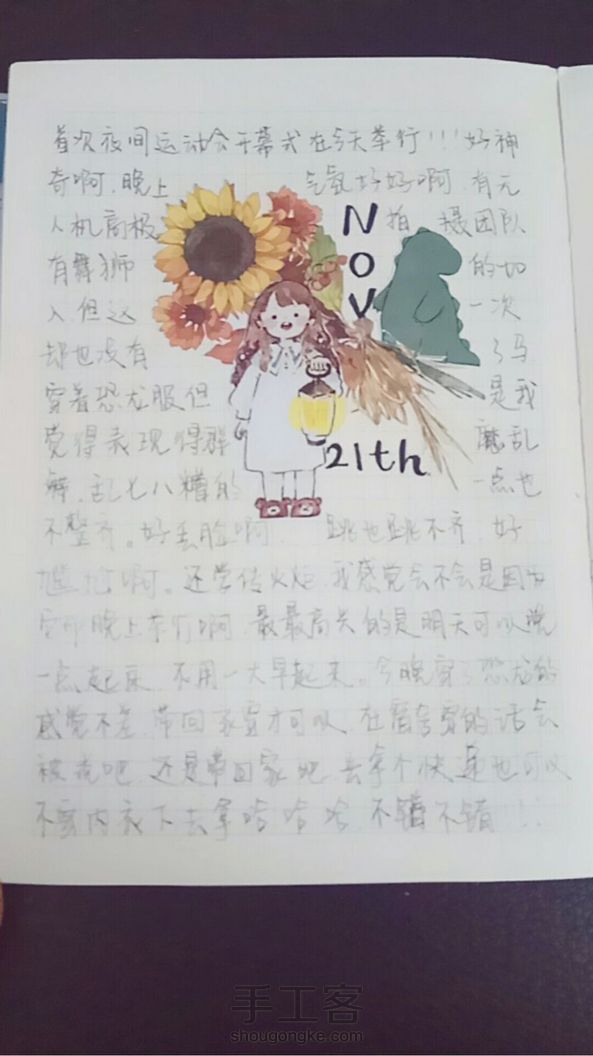 首次夜间运动会开幕式在今天举行!!!好神
奇啊,晚上 气氛好好啊,有无
人机高极 拍 摄团队
有舞狮 的加
入但这 一次
却也没有 了马
穿着恐龙服但 是我
觉得表现得群 魔乱
舞,乱七八糟的 一点也
不整齐。好丢脸啊, 跳也跳不齐,好
尴尬啊。还学传火炬,我感觉会不会是因为
晚上举行啊,最最高兴的是明天可以晚
一点起床,不用一大早起来。今晚穿了恐龙的
感觉不差,带回家穿才可以,在宿舍穿的话会
被 吧,还是带回家吧,去拿个快递也可以
不穿内衣下去拿哈哈哈,不错不错!!
NOV
21th
手工客
shougongke.com